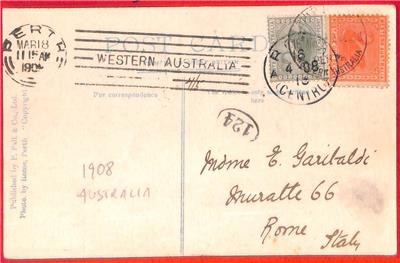 POST CARD
PERTH
MAR 18
11 15 AM
190
WESTERN AUSTRALIA
ROMA
4 - 08
(CENTRO)
AUSTRALIA
For correspondence
124
1908
AUSTRALIA
Mome E. Garibaldi
Muratte 66
Rome
Italy
Published by F. Falk & Co., Ltd.
Photo. by Rome, Perth "Copyright